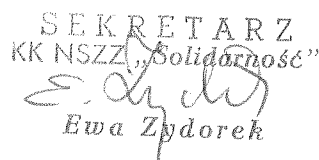 SEKRETARZ
KK NSZZ „Solidarność”
Ewa Zydorek